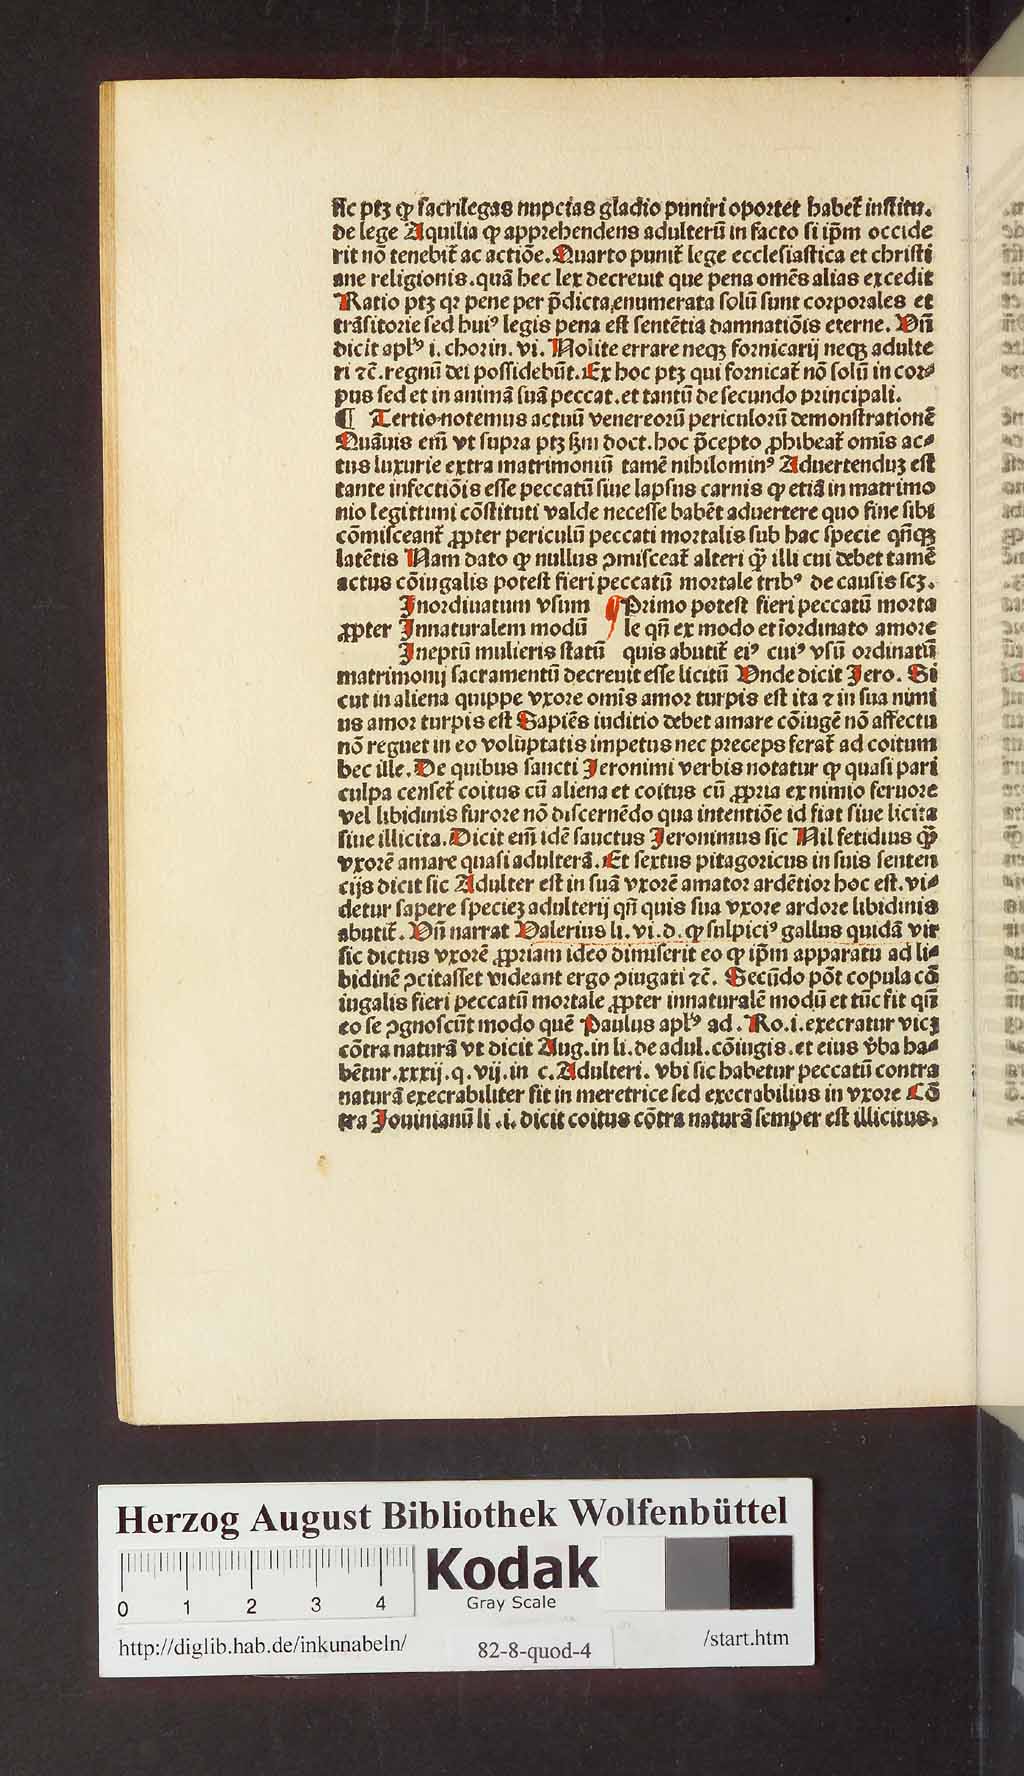 sic ptȝ ꝙ sacrilegas nupcias gladio puniri oportet habet᷑ institu.
de lege Aquilia ꝙ apprehendens adulterū in facto si ip̄m occide
rit nō tenebit᷑ ac actiōe. Quarto punit᷑ lege ecclesiastica et christi
ane religionis. quā hec lex decreuit que pena omēs alias excedit
Ratio ptȝ qꝛ pene per p̄dicta enumerata solū sunt corporales et
trāsitorie sed huiꝰ legis pena est sentētia damnatiōis eterne. Vn̄
dicit aplꝰ i. chorin. vi. Nolite errare neqꝫ fornicarij neqꝫ adulte
ri ⁊c̄. regnū dei possidebūt. Ex hoc ptȝ qui fornicat᷑ nō solū in cor⸗
pus sed et in animā suā peccat. et tantū de secundo principali.
¶ Tertio notemus actuū venereorū periculorū demonstrationē
Quāuis em̄ vt supra ptȝ ẜm doct. hoc p̄cepto ꝓhibeat᷑ omīs ac⸗
tus luxurie extra matrimoniū tamē nihilominꝰ Aduertenduȝ est
tante infectiōis esse peccatū siue lapsus carnis ꝙ etiā in matrimo
nio legittimi cōstituti valde necesse habēt aduertere quo fine sibi
cōmisceant᷑ ꝓpter periculū peccati mortalis sub hac specie qn̄qꝫ
latētis Nam dato ꝙ nullus ꝯmisceat᷑ alteri ꝙ̄ illi cui debet tamē
actus cōiugalis potest fieri peccatū mortale tribꝰ de causis scȝ.
Inordinatum vsum ¶ Primo potest fieri peccatū morta
ꝓpter Innaturalem modū le qn̄ ex modo et īordinato amore
Ineptū mulieris statū quis abutit᷑ eiꝰ cuiꝰ vsū ordinatū
matrimonij sacramentū decreuit esse licitū Vnde dicit Jero. Si
cut in aliena quippe vxore omīs amor turpis est ita ⁊ in sua nimi
us amor turpis est Sapiēs iuditio debet amare cōiugē nō affectu
nō regnet in eo voluptatis impetus nec preceps ferat᷑ ad coitum
hec ille. De quibus sancti Jeronimi verbis notatur ꝙ quasi pari
culpa censet᷑ coitus cū aliena et coitus cū ꝓpria ex nimio feruore
vel libidinis furore nō discernēdo qua intentiōe id fiat siue licita
siue illicita. Dicit em̄ idē sanctus Jeronimus sic Nil fetidius ꝙ̄
vxorē amare quasi adulterā. Et sextus pitagoricus in suis senten
cijs dicit sic Adulter est in suā vxorē amator ardētior hoc est. vi⸗
detur sapere specieȝ adulterij qn̄ quis sua vxore ardore libidinis
abutit᷑. Vn̄ narrat Valerius li. vi. d. ꝙ sulpiciꝰ gallus quidā vir
sic dictus vxorē ꝓpriam ideo dimiserit eo ꝙ ip̄m apparatu ad li⸗
bidinē ꝯcitasset videant ergo ꝯiugati ⁊c̄. Secūdo pōt copula cō
iugalis fieri peccatū mortale ꝓpter innaturalē modū et tūc fit qn̄
eo se ꝯgnoscūt modo quē Paulus aplꝰ ad. Ro. i. execratur vicȝ
cōtra naturā vt dicit Aug. in li. de adul. cōiugis. et eius v̄ba ha⸗
bētur. xxxij. q. vij. in c. Adulteri. vbi sic habetur peccatū contra
naturā execrabiliter fit in meretrice sed execrabilius in vxore Cō
tra Jouinianū li .i. dicit coitus cōtra naturā semper est illicitus.
Herzog August Bibliothek Wolfenbüttel
0 1 2 3 4
Kodak
Gray Scale
http://diglib.hab.de/inkunabeln/ 82-8-quod-4 /start.htm